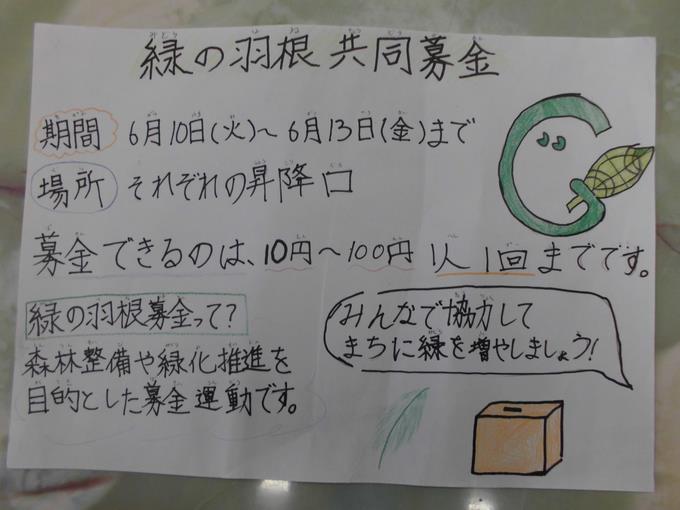 緑の羽根共同募金
期間 6月10日(火)～6月13日(金)まで
場所 それぞれの昇降口
募金できるのは、10円～100円 1人 1回までです。
緑の羽根募金って?
森林整備や緑化推進を
目的とした募金運動です。
みんなで協力して
まちに緑を増やしましょう!